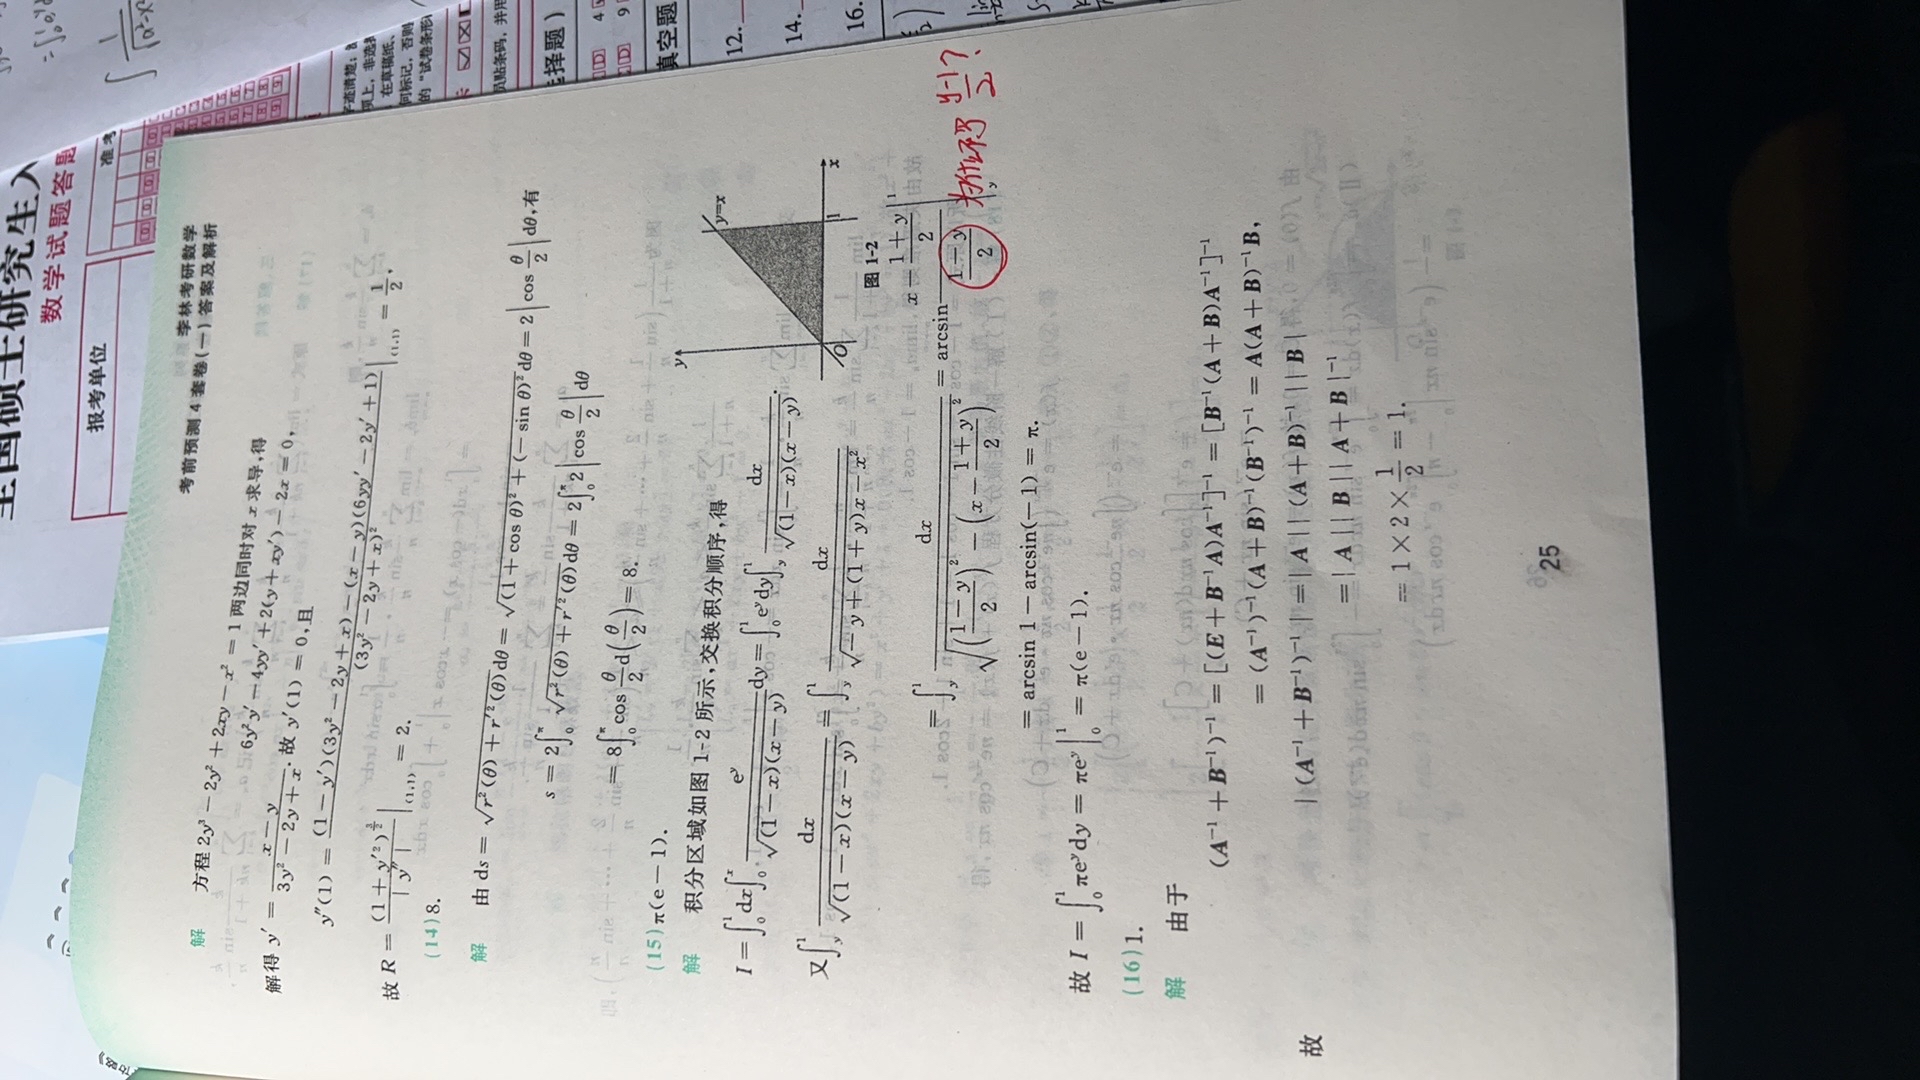 全国硕士研究生入
数学试题答题
报考单位
准考
选择题)
真空题
12.
14.
16.
考前预测4套卷(一)答案及解析
李林考研数学
解 方程 2y³ − 2y² + 2xy − x² = 1 两边同时对 x 求导,得
6y²y′ − 4yy′ + 2(y + xy′) − 2x = 0,
解得 y′ = (x − y)/(3y² − 2y + x). 故 y′(1) = 0,且
y″(1) = [(1 − y′)(3y² − 2y + x) − (x − y)(6yy′ − 2y′ + 1)]/(3y² − 2y + x)² |₍₁,₁₎ = 1/2.
故 R = (1 + y′²)^(3/2)/|y″| |₍₁,₁₎ = 2.
(14)8.
解 由 ds = √(r²(θ) + r′²(θ)) dθ = √((1 + cos θ)² + (−sin θ)²) dθ = 2|cos θ/2| dθ,有
s = 2∫₀^π √(r²(θ) + r′²(θ)) dθ = 2∫₀^π 2|cos θ/2| dθ
= 8∫₀^π cos θ/2 d(θ/2) = 8.
(15)π(e − 1).
解 积分区域如图 1-2 所示,交换积分顺序,得
I = ∫₀¹ dx ∫₀ˣ e^y/√((1 − x)(x − y)) dy = ∫₀¹ e^y dy ∫_y¹ dx/√((1 − x)(x − y)).
y
y=x
O
1
x
图 1-2
又 ∫_y¹ dx/√((1 − x)(x − y)) = ∫_y¹ dx/√(−y + (1 + y)x − x²)
= ∫_y¹ dx/√(((1 − y)/2)² − (x − (1 + y)/2)²) = arcsin (x − (1 + y)/2)/((1 − y)/2) |_y¹
为什么不写 (y−1)/2 ?
= arcsin 1 − arcsin(−1) = π.
故 I = ∫₀¹ πe^y dy = πe^y |₀¹ = π(e − 1).
(16)1.
解 由于
(A⁻¹ + B⁻¹)⁻¹ = [(E + B⁻¹A)A⁻¹]⁻¹ = [B⁻¹(A + B)A⁻¹]⁻¹
= (A⁻¹)⁻¹(A + B)⁻¹(B⁻¹)⁻¹ = A(A + B)⁻¹B,
故 |(A⁻¹ + B⁻¹)⁻¹| = |A||(A + B)⁻¹||B|
= |A||B||A + B|⁻¹
= 1 × 2 × 1/2 = 1.
25